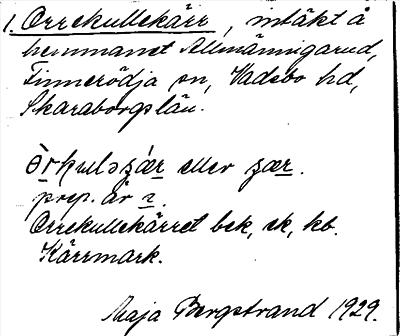 1. Orrekullekärr, intäkt å
hemmanet Allmänningarud,
Finnerödja sn, Vadsbo hd,
Skaraborgs län.
eller
prep. är
Orrekullekärret bek, sk, kb.
Kärrmark.
Maja Bergstrand 1929.